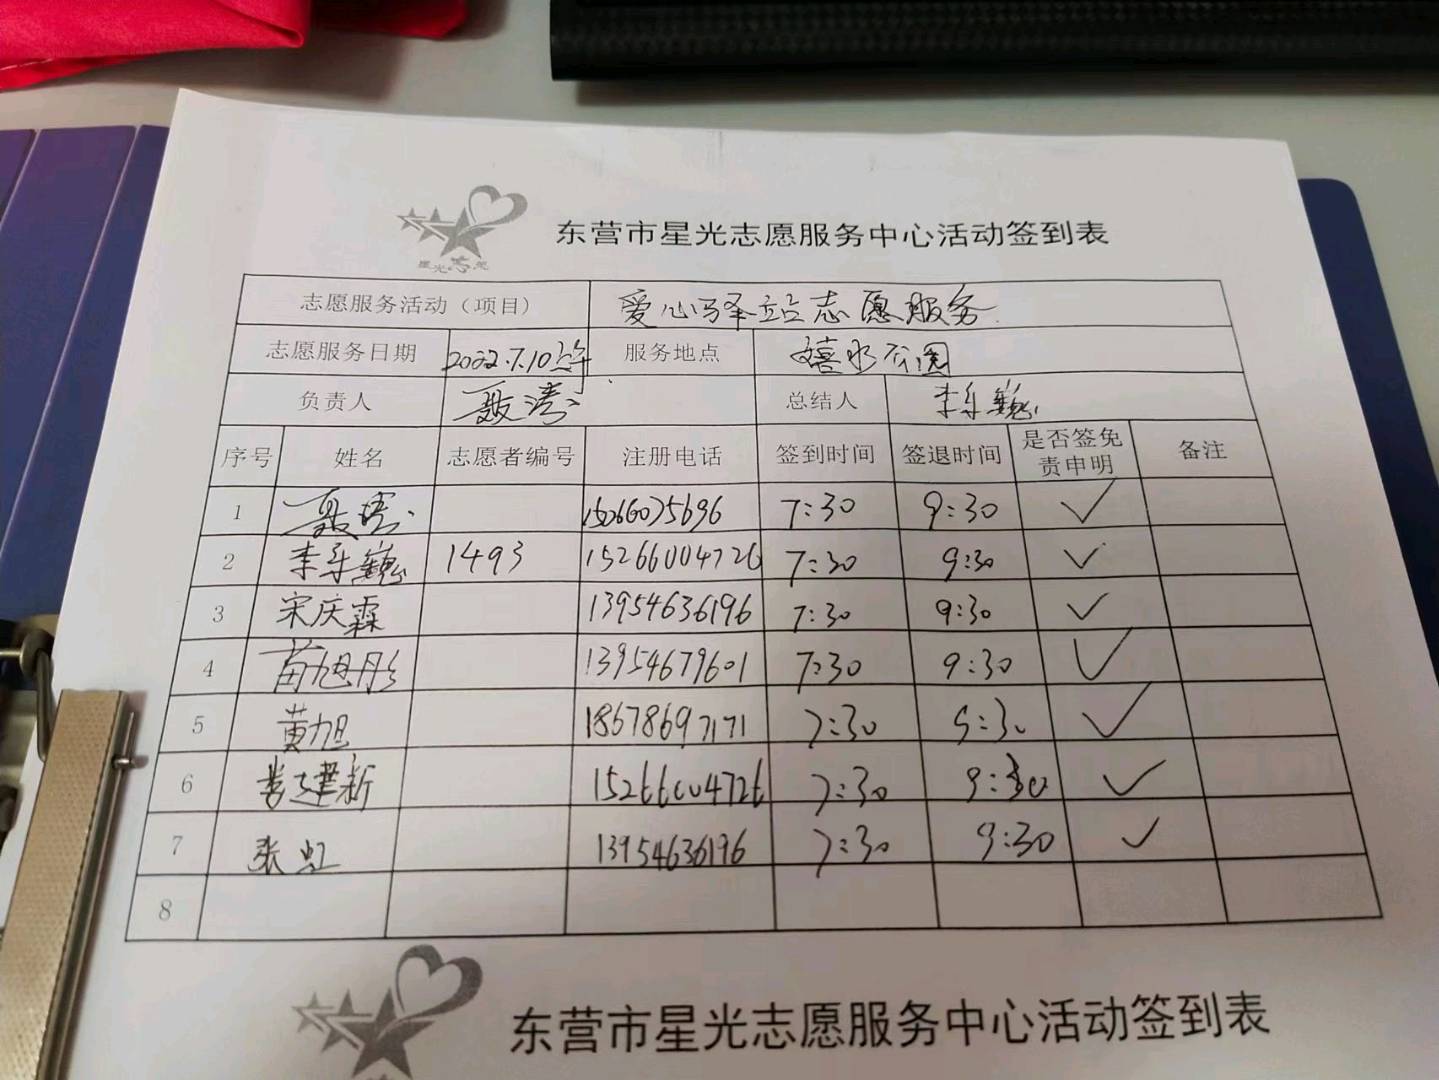 星光志愿
东营市星光志愿服务中心活动签到表
志愿服务活动（项目） 爱心驿站志愿服务
志愿服务日期 2022.7.10上午 服务地点 嬉水公园
负责人 聂湾 总结人 李乐巍
序号 姓名 志愿者编号 注册电话 签到时间 签退时间 是否签免责申明 备注
1 聂湾 15066075696 7:30 9:30 ✓
2 李乐巍 1493 15266004726 7:30 9:30 ✓
3 宋庆霖 13954636196 7:30 9:30 ✓
4 苗旭彤 13954679601 7:30 9:30 ✓
5 黄旭 18678697171 7:30 9:30 ✓
6 建新 15266004726 7:30 9:30 ✓
7 张虹 13954636196 7:30 9:30 ✓
8
东营市星光志愿服务中心活动签到表